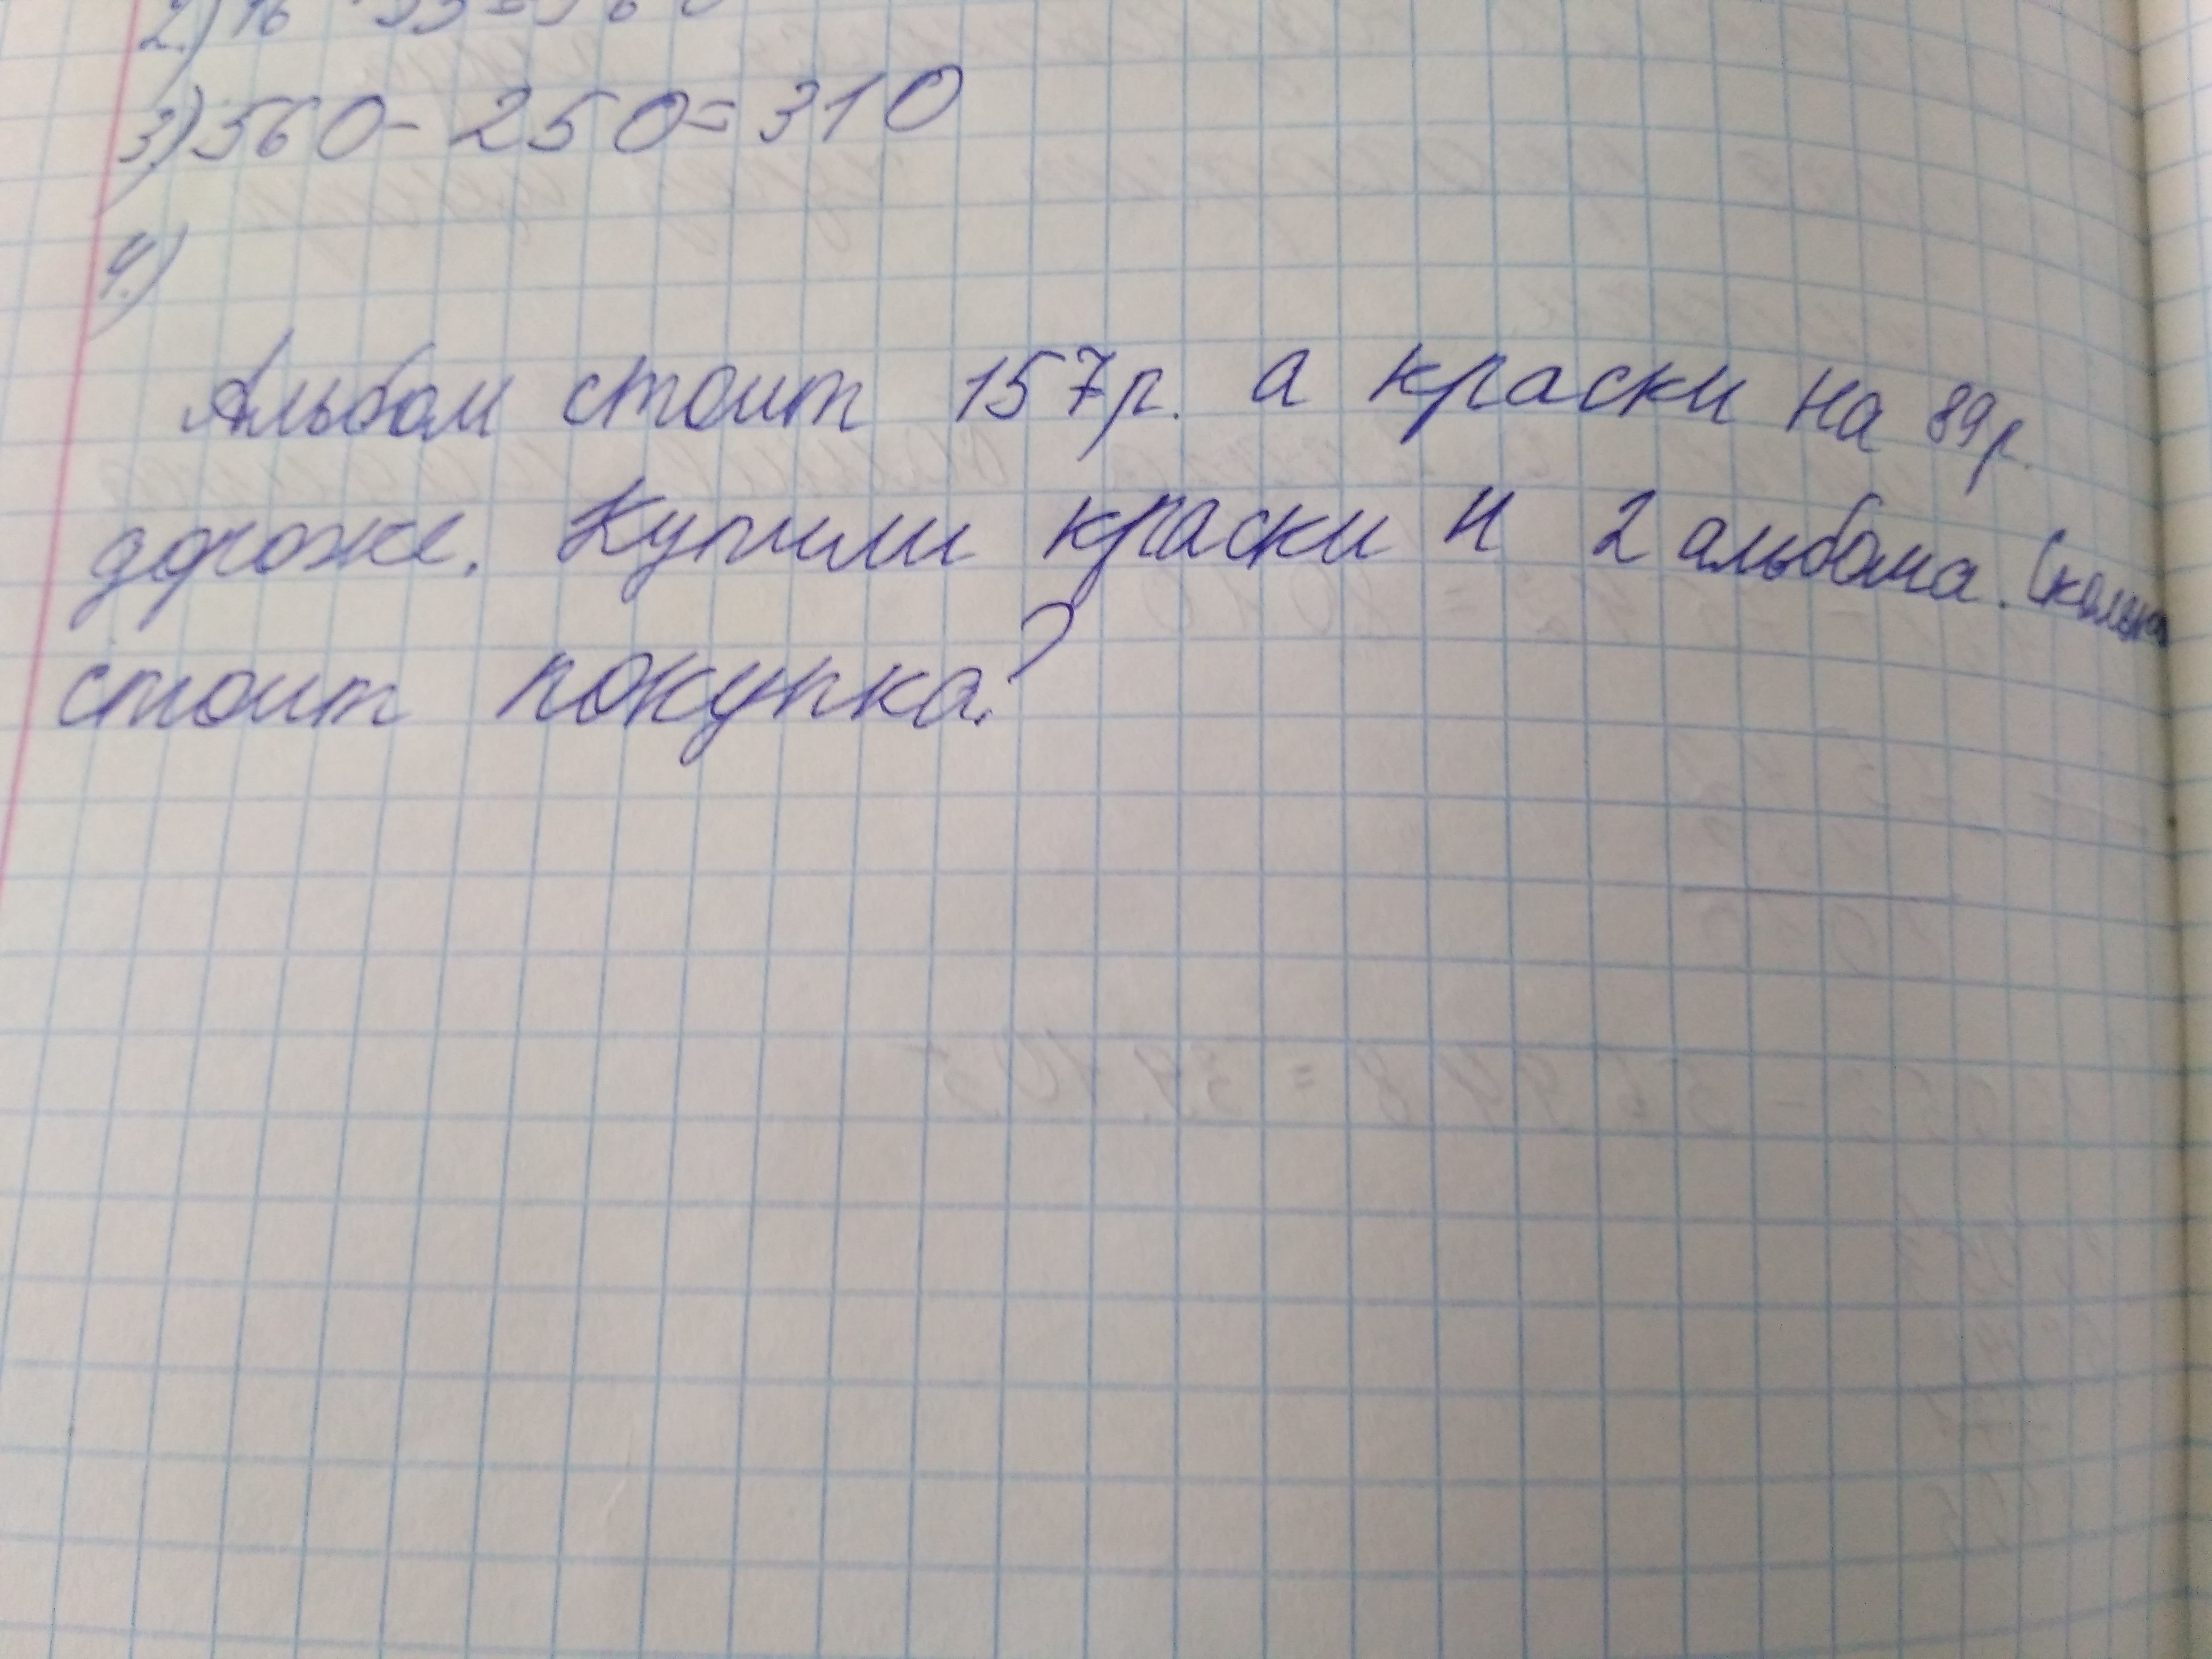 3.) 560 - 250 = 310
4.)
Альбом стоит 157р. а краски на 89р.
дороже. Купили краски и 2 альбома. Сколько
стоит покупка?